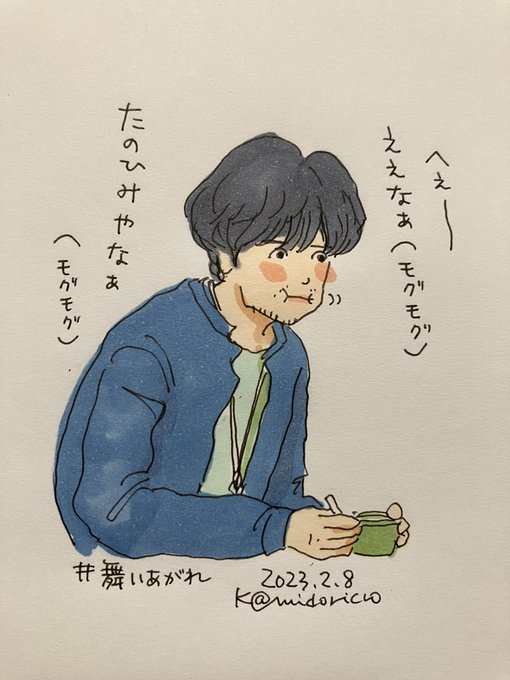 へぇー
ええなぁ(モグモグ)
たのひみやなぁ
(モグモグ)
#舞いあがれ
2023.2.8